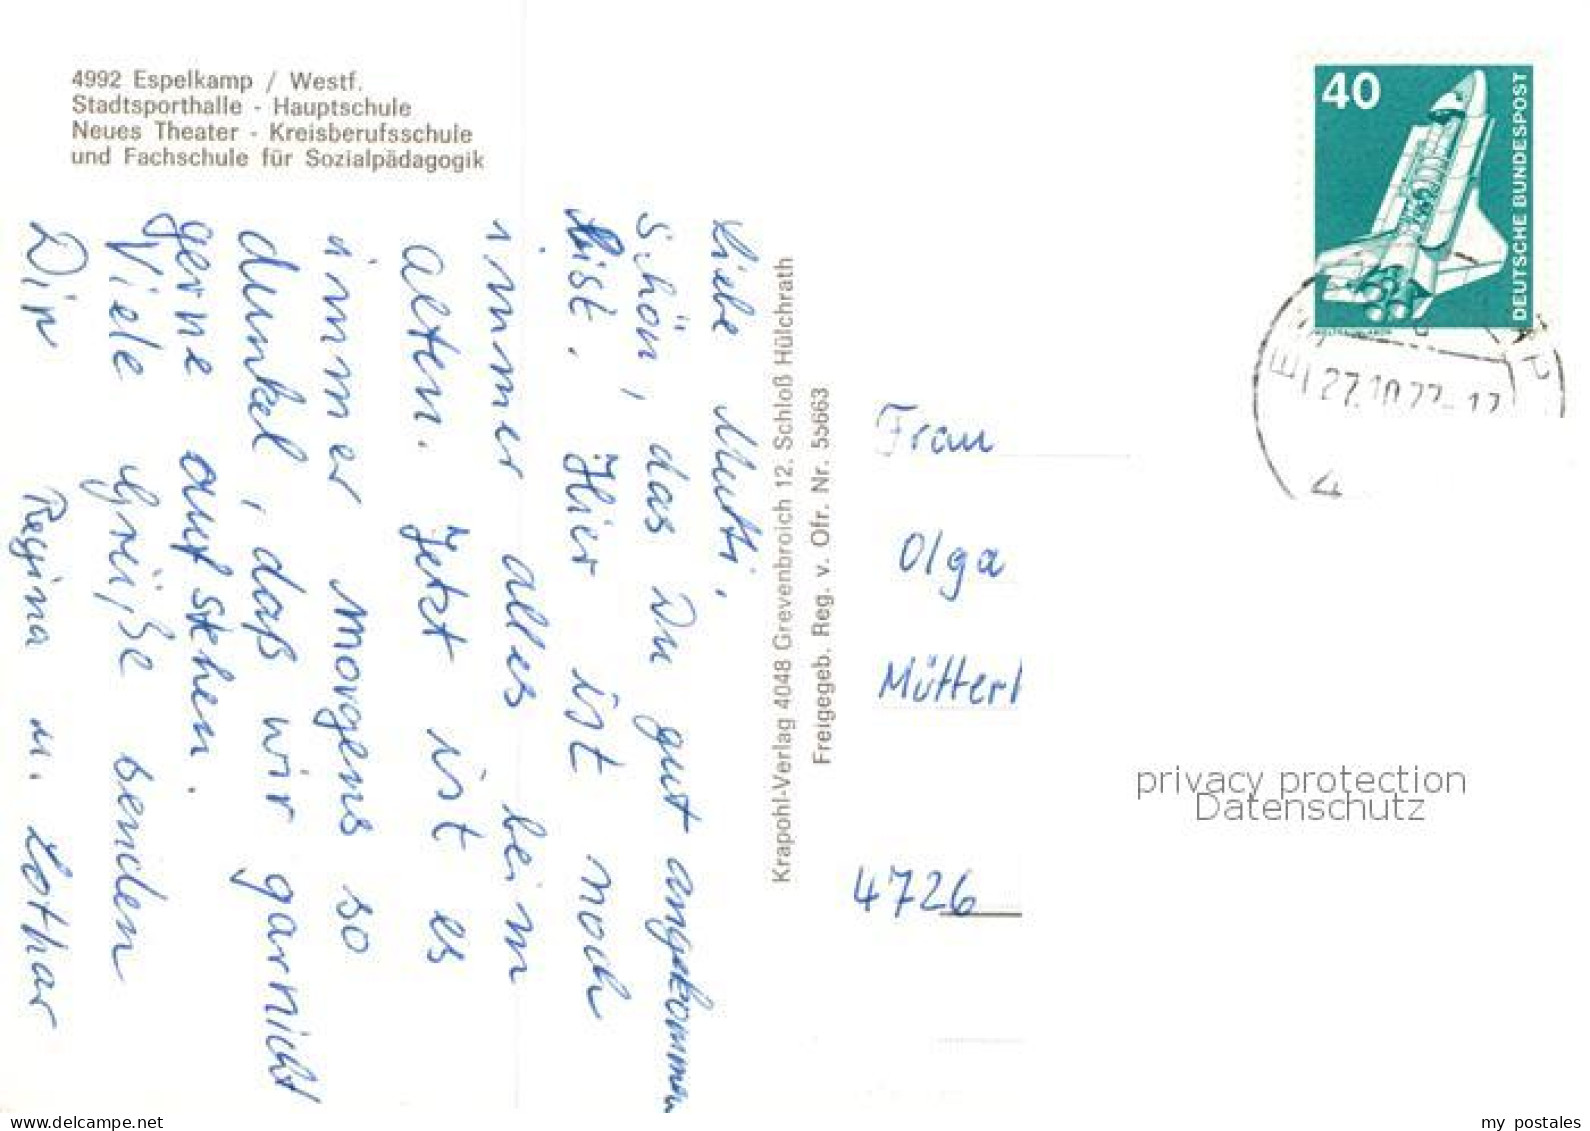 4992 Espelkamp / Westf.
Stadtsporthalle - Hauptschule
Neues Theater - Kreisberufsschule
und Fachschule für Sozialpädagogik
Liebe Mutti,
schön, das Du gut angekommen
bist. Hier ist noch
immer alles beim
alten. Jetzt ist es
immer morgens so
dunkel, daß wir garnicht
gerne aufstehen.
Viele Grüße senden
Dir Regina u. Lothar
Krapohl-Verlag 4048 Grevenbroich 12, Schloß Hülchrath
Freigegeb. Reg. v. Ofr. Nr. 55663
40
DEUTSCHE BUNDESPOST
27.10.77-17
Frau
Olga
Mütterl
4726
privacy protection
Datenschutz
www.delcampe.net
my postales